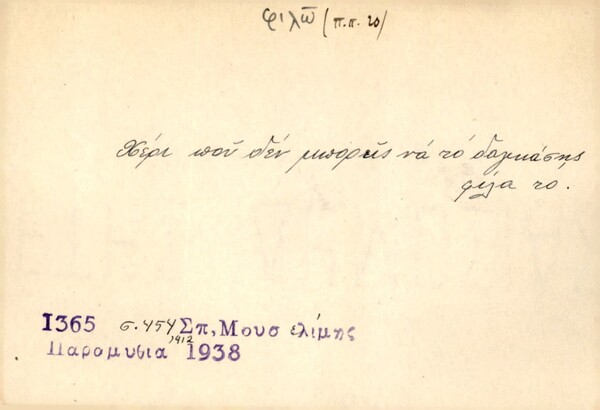 φιλῶ (π.π. 20)
Χέρι ποῦ δέν μπορεῖς νά τό δαγκάσης
φίλα το.
1365 σ. 454 Σπ, Μουσελίμης
1912
Παρομυθια 1938